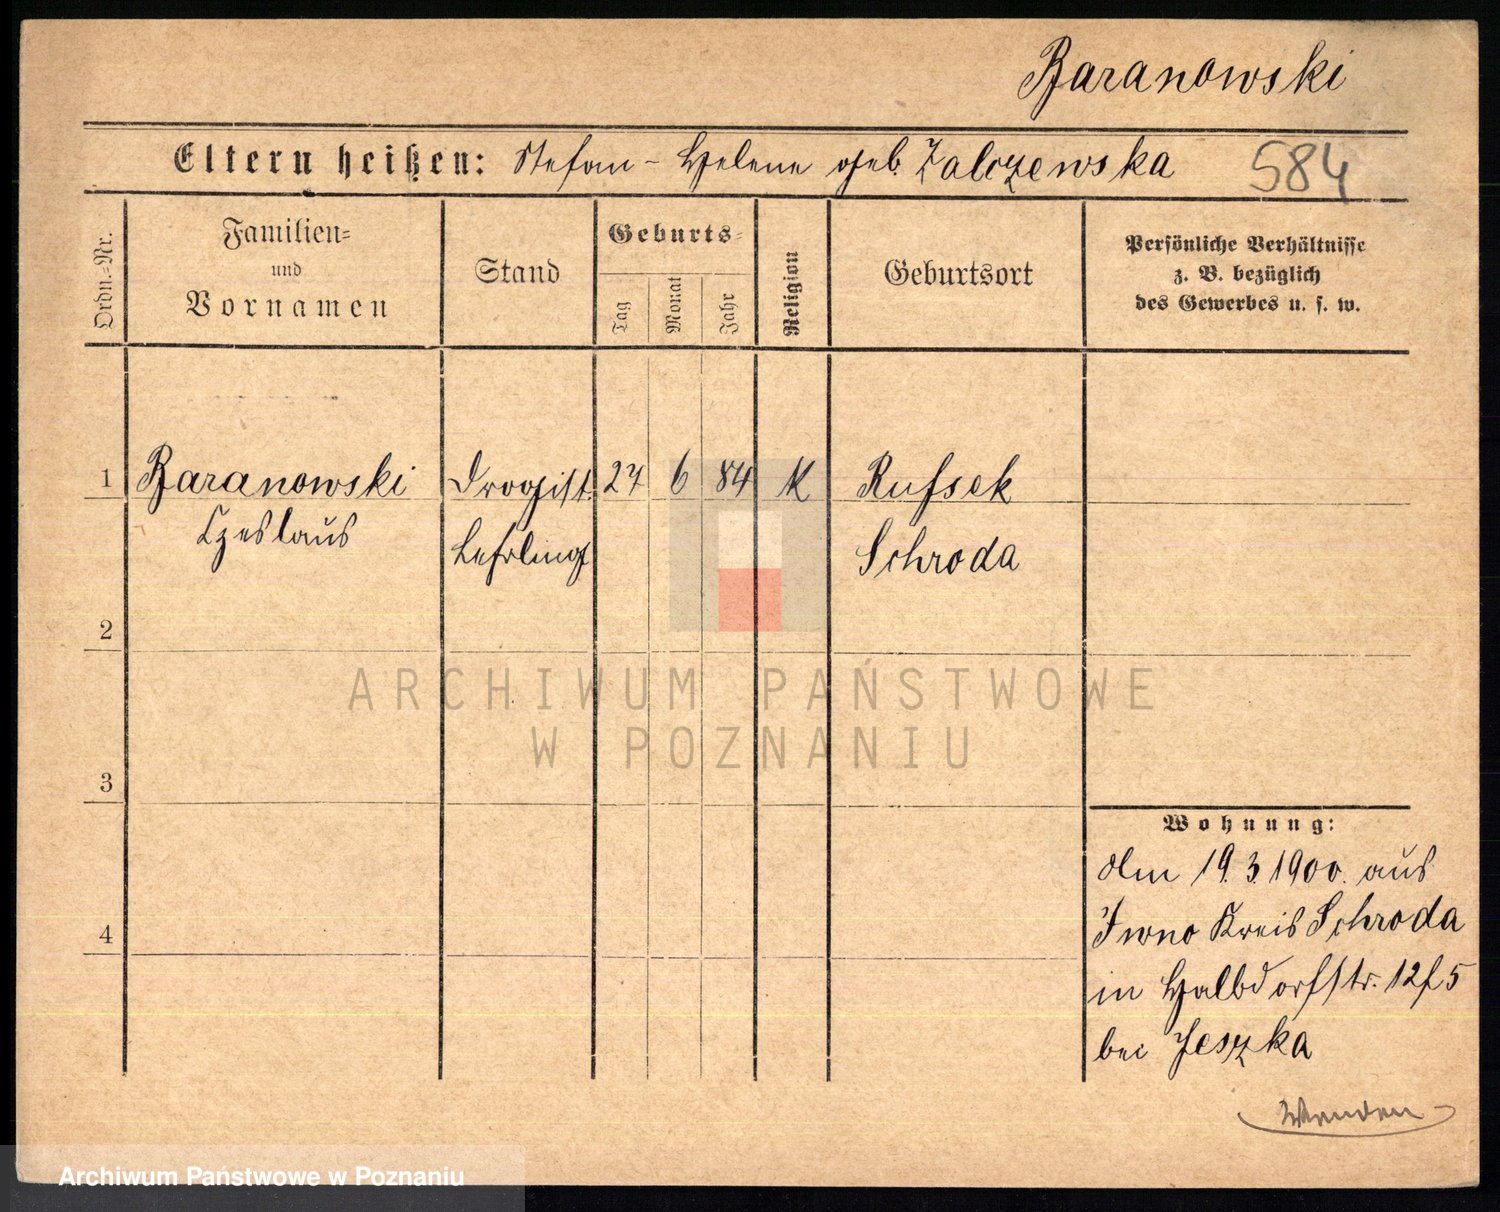 Baranowski
Eltern heißen: Stefan - Helene geb. Zalczewska 584
Ordn.-Nr.
Familien- und Vornamen
Stand
Geburts-
Tag
Monat
Jahr
Religion
Geburtsort
Persönliche Verhältnisse
z. B. bezüglich
des Gewerbes u. s. w.
1 Baranowski Drogist. 6 84 K Rufsek
Czeslaus Lehrling Schroda
2
3
4
Wohnung:
Am 19.3.1900. aus
Iwno Kreis Schroda
in Halbdorfstr. 12f5
bei Jeszka
Wenden
ARCHIWUM PAŃSTWOWE
W POZNANIU
Archiwum Państwowe w Poznaniu